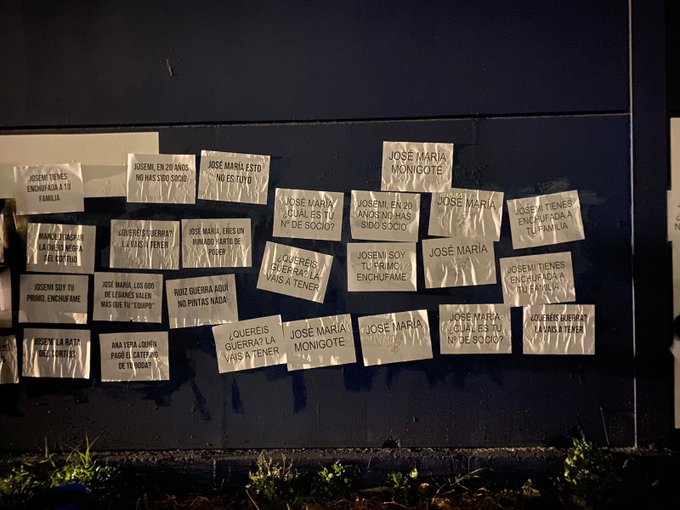 JOSEMI TIENES
ENCHUFADA A TU
FAMILIA
JOSEMI, EN 20 AÑOS
NO HAS SIDO SOCIO
JOSÉ MARÍA ESTO
NO ES TUYO
JOSÉ MARÍA
MONIGOTE
JOSÉ MARÍA
¿CUÁL ES TU
Nº DE SOCIO?
JOSEMI, EN 20
AÑOS NO HAS
SIDO SOCIO
JOSÉ MARÍA
JOSEMI TIENES
ENCHUFADA A
TU FAMILIA
GASPAR
LA OVEJA NEGRA
DEL CORTIJO
¿QUERÉIS GUERRA?
LA VAIS A TENER
JOSÉ MARÍA, ERES UN
MIMADO HARTO DE
PODER
¿QUERÉIS
GUERRA? LA
VAIS A TENER
JOSEMI SOY
TU PRIMO,
ENCHUFAME
JOSÉ MARÍA
JOSEMI TIENES
ENCHUFADA A
TU FAMILIA
JOSEMI SOY TU
PRIMO, ENCHUFAME
JOSÉ MARÍA, LOS 600
DE LEGANÉS VALEN
MÁS QUE TU "EQUIPO"
RUIZ GUERRA AQUÍ
NO PINTAS NADA
¿QUERÉIS
GUERRA? LA
VAIS A TENER
JOSÉ MARÍA
MONIGOTE
JOSÉ MARÍA
JOSÉ MARÍA
¿CUÁL ES TU
Nº DE SOCIO?
¿QUERÉIS GUERRA?
LA VAIS A TENER
JOSEMI LA RATA
DEL CORTIJO
ANA VERA ¿QUIÉN
PAGÓ EL CATERING
DE TU BODA?